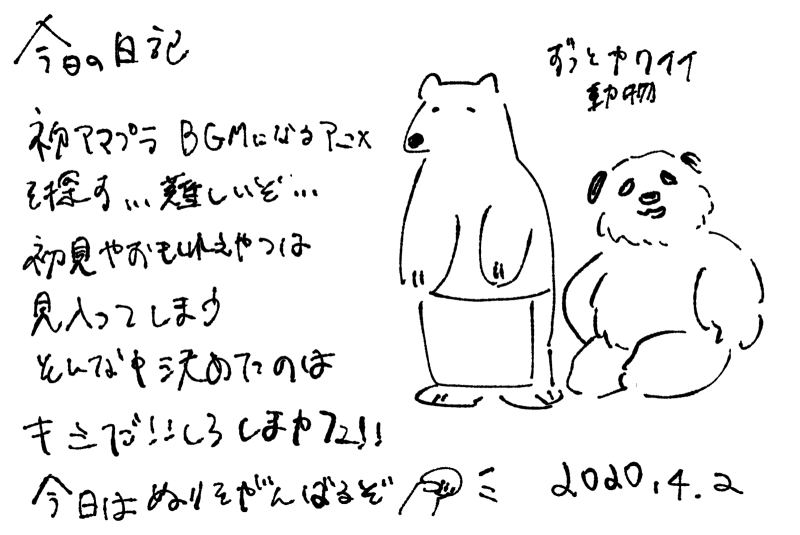 今日の日記
ずっとカワイイ
動物
初アマプラ BGMになるアニメ
を探す...難しいぞ...
初見やおもしれえやつは
見入ってしまう
そんな中決めたのは
キミだ!!しろくまカフェ!!
今日はぬりそがんばるぞ
2020.4.2